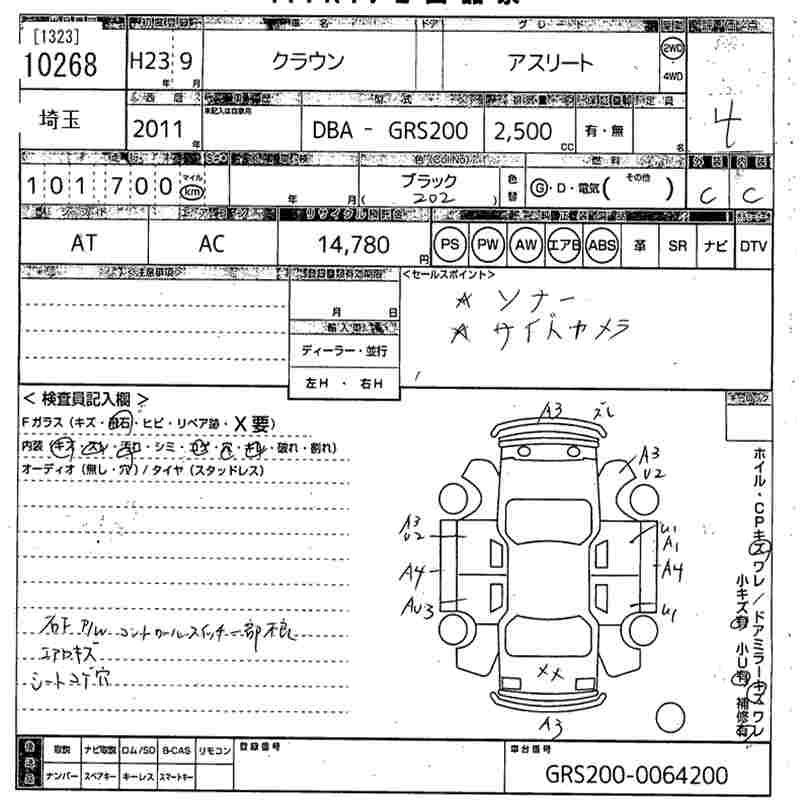 [1323]
10268
H23 9
年 月
クラウン
ドア
アスリート
2WD
4WD
4
埼玉
2011 年
DBA - GRS200
2,500 CC
有・無
名
101700
マイル
km
年 月
ブラック
( 202 )
色替
G・D・電気( その他 )
C C
AT
AC
14,780 円
PS PW AW エアB ABS 革 SR ナビ DTV
<セールスポイント>
☆ ソナー
☆ サイドカメラ
月 日
ディーラー・並行
左H ・ 右H
< 検査員記入欄 >
Fガラス(キズ・飛石・ヒビ・リペア跡・X要)
オーディオ(無し・穴)/タイヤ(スタッドレス)
A3 ズレ
A3
U2
A3
U2
U1
A1
A4
A4
AU3
U1
XX
A3
ホイル・CPキズワレ/ドアミラーキズワレ
小キズ有 小U有 補修有
右F P/W コントロールスイッチ一部不良
エアロキズ
シートコゲ穴
取説 ナビ取説 ロム/SD B-CAS リモコン
ナンバー スペアキー キーレス スマートキー
登録番号
車台番号
GRS200-0064200